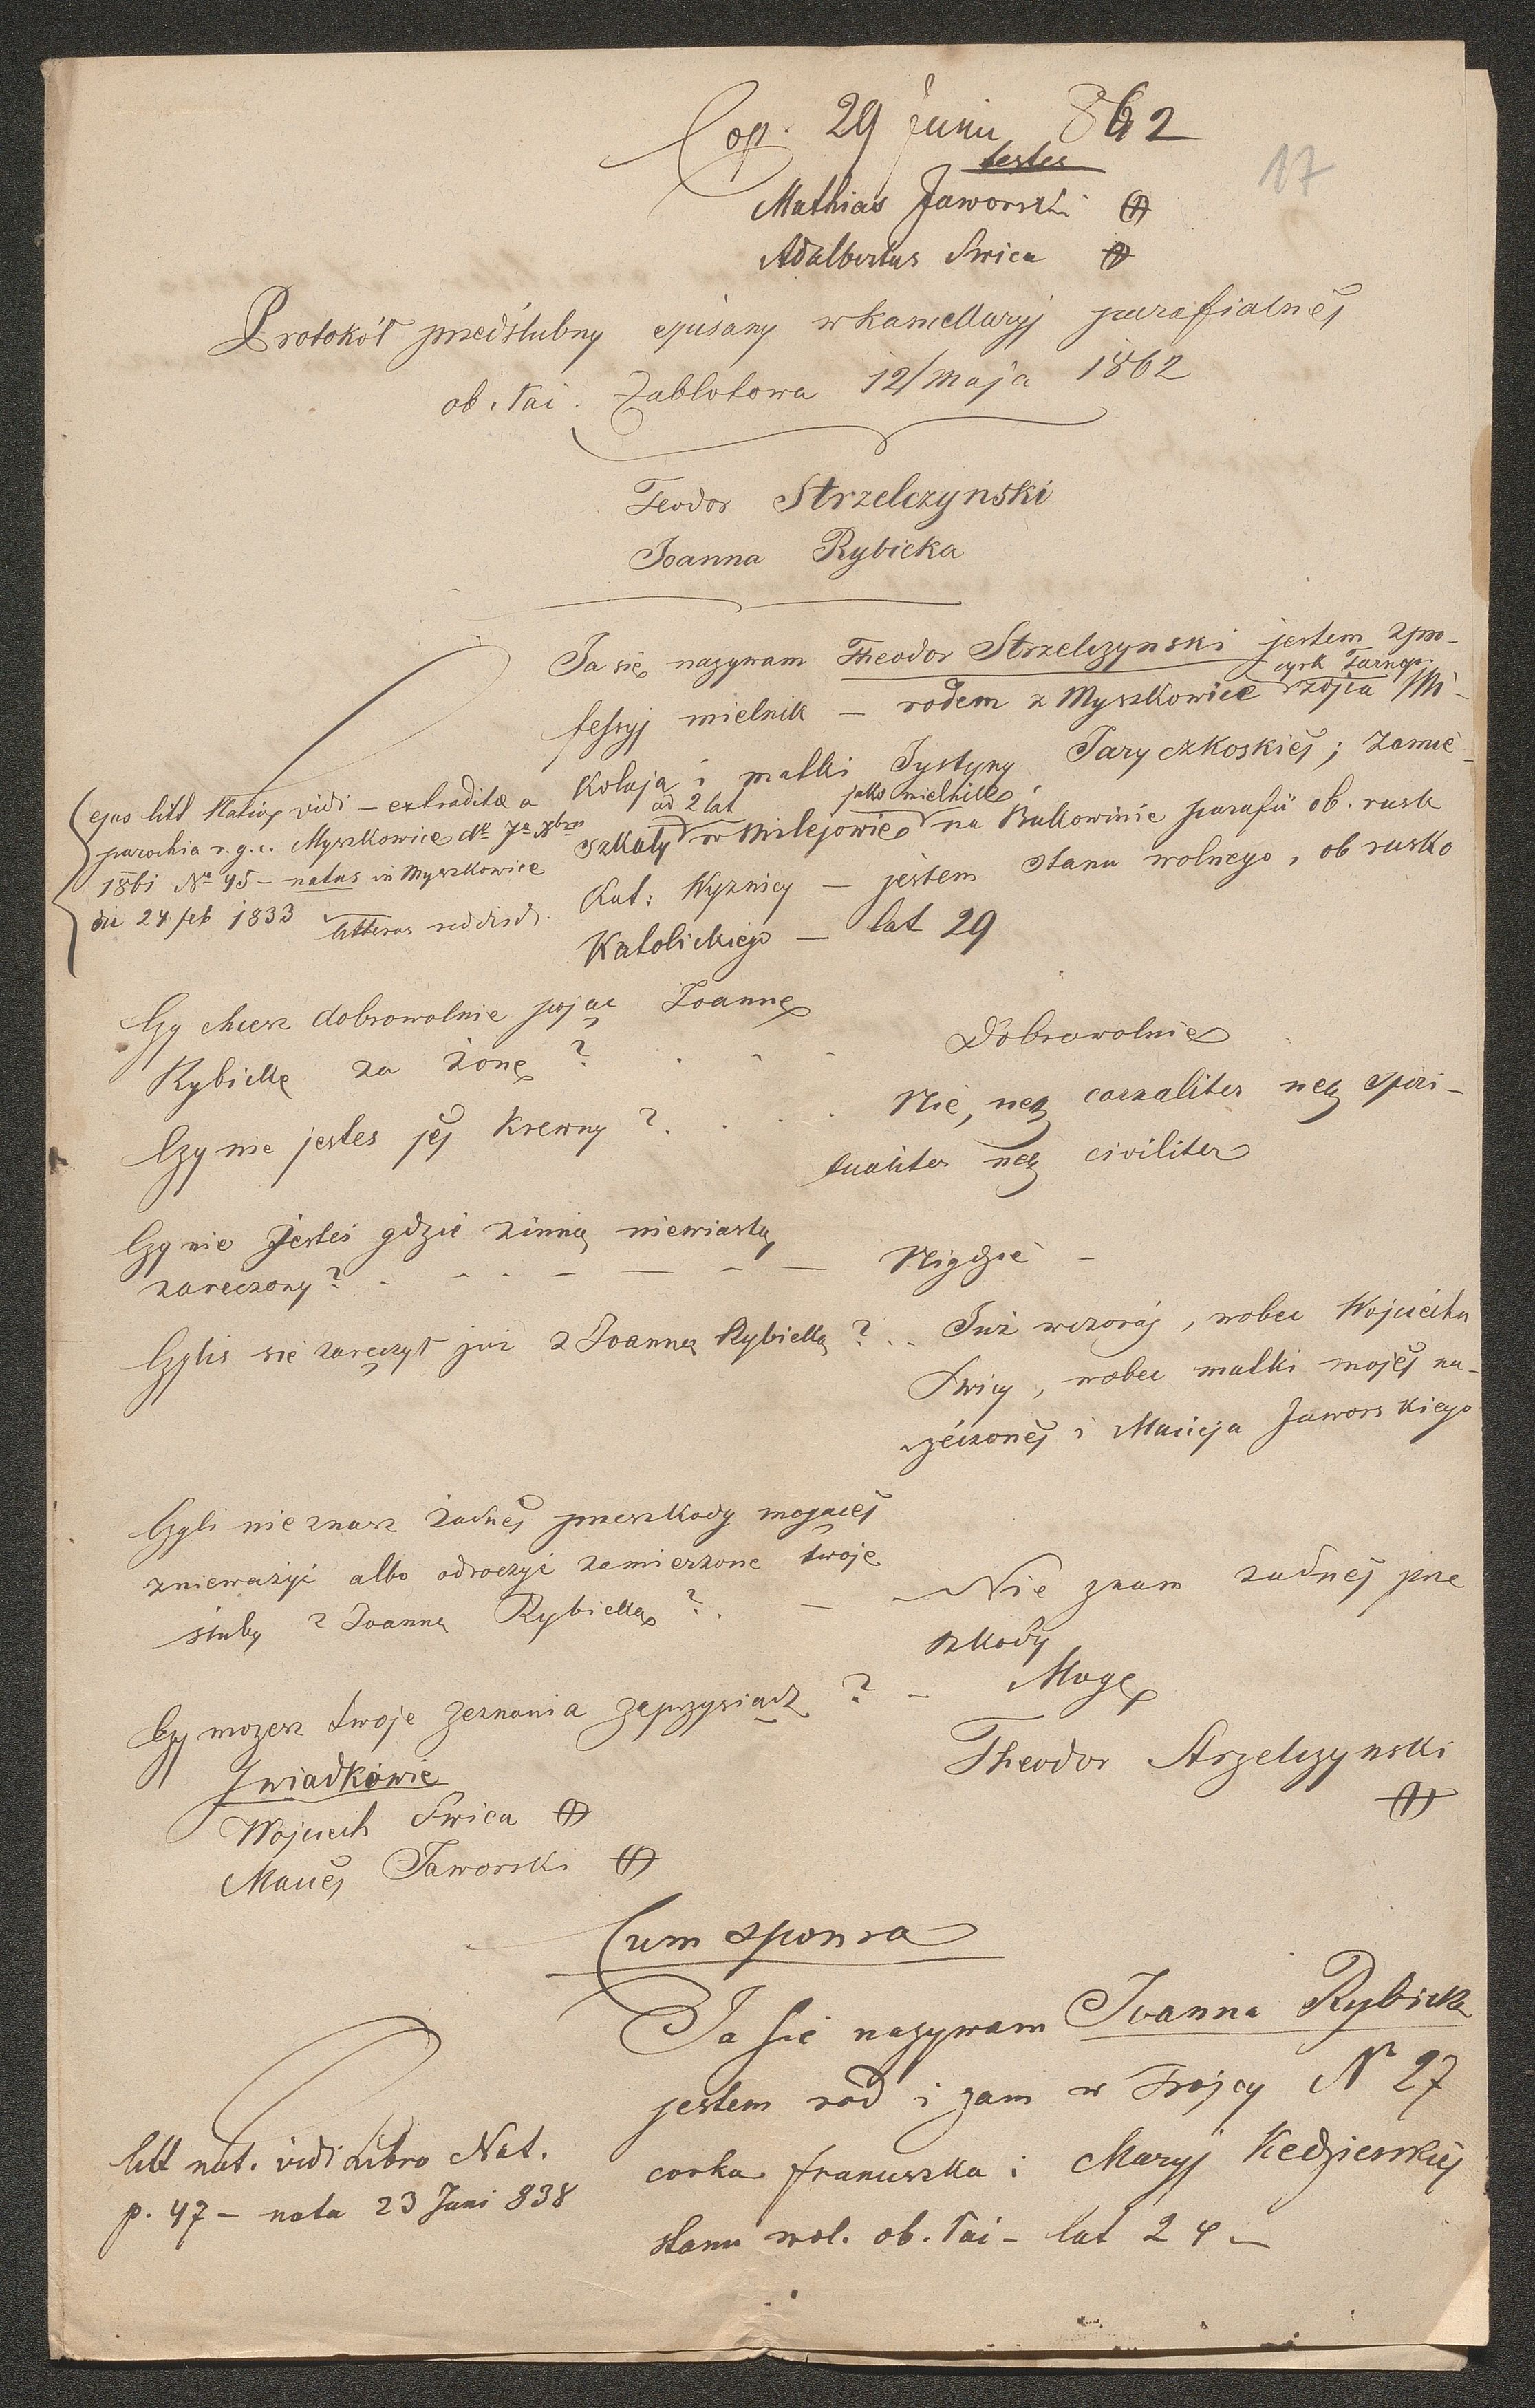 Cop. 29 Junii 862
testes
17
Mathias Jaworski
Adalbertus Swica
Protokół przedślubny spisany w kancellaryj parafialnéj
ob. łaí. Zabłotowa 12/Maja 1862
Teodor Strzelczynski
Joanna Rybicka
Ja się nazywam Theodor Strzelczynski jestem z pro-
cyrk Tarnop.
fessyj mielnik — rodem z Myszkowice z ojca Mi-
kołaja i matki Jystyny Taryczkoskiéj; zamie-
od 2 lat jako mielnik
szkały w Milejowie na Bukowinie parafii ob. rusk
Kat: Wyznicy — jestem stanu wolnego, ob rusko
Katolickiego — lat 29
ejus litt Natiox vidi — extraditæ a
parochia r. g. c. Myszkowice 7a
1861 No 45 — natus in Myszkowice
die 24 feb 1833 litteras reddidi.
Czy chcesz dobrowolnie pojąc Joannę
Rybickę za żonę? . . . Dobrowolnie
Czy nie jestes jéj Krewny? . . . Nie, neq carnaliter neq spiri-
tualiter neq civiliter
Czy nie jesteś gdzie z inną niewiastą
zaręczony? . - - - — — — — Nigdzie -
Czyliś się zaręczył już z Joanną Rybicką? . . Już wczoráj, wobec Wojciecha
Swicy, wobec matki mojéj na-
rzéczonéj i Macieja Jaworskiego
Czyli nie znasz żadnéj przeszkody mogącéj
znieważyć albo odroczyć zamierzone twoje
śluby z Joanną Rybicką? . — Nie znam żadnéj prze
szkody
Czy mozesz twoje zeznania zaprzysiądz? - Mogę
Theodor Strzelczynski
Swiadkowie
Wojciech Swica
Maciéj Jaworski
Cum sponsa
Ja się nazywam Joanna Rybicka
jestem rod i zam w Trojcy No 27
corka Franciszka i Maryj Kedzierskiéj
stanu wol. ob. łaí - lat 24 —
litt nat. vidi Libro Nat.
p. 47 — nata 23 Juni 838